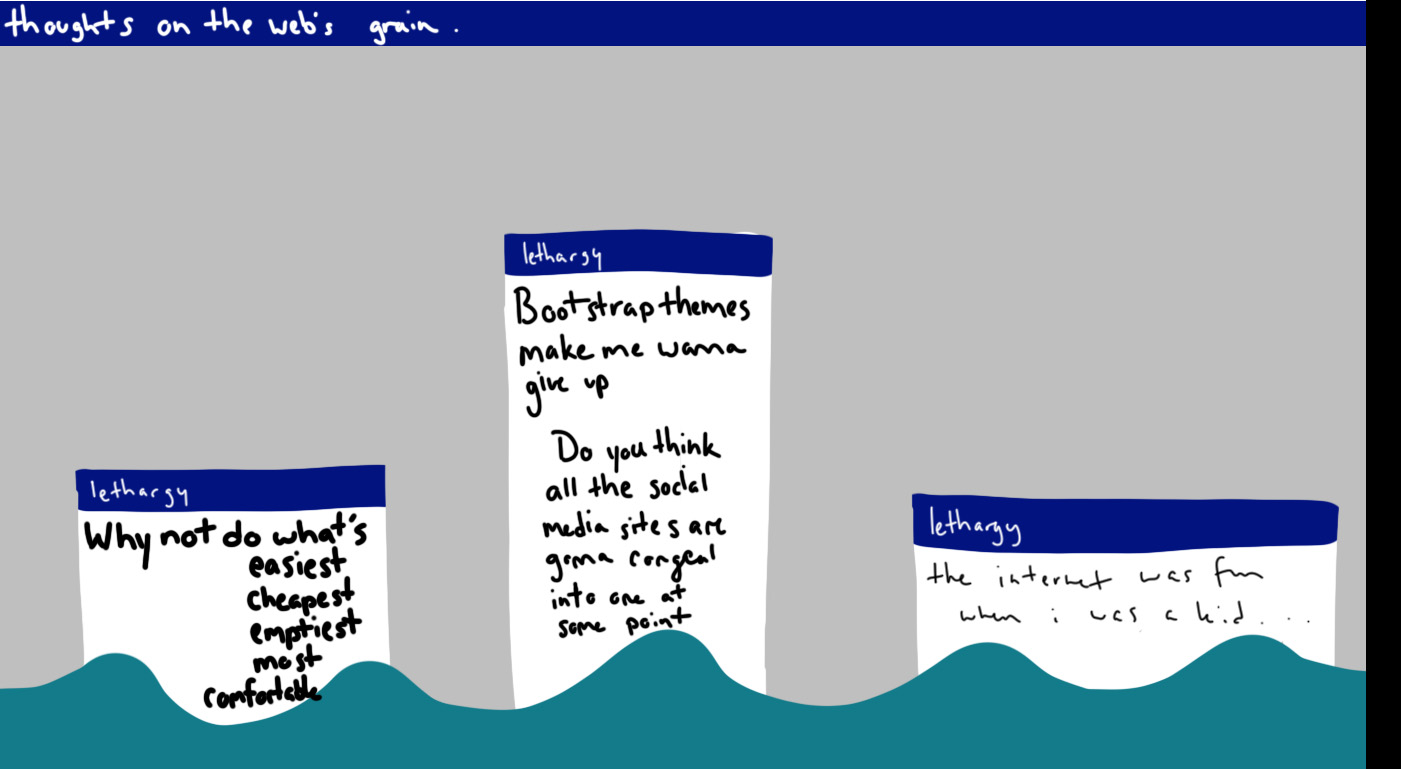 thoughts on the web's grain.
lethargy
Why not do what's
easiest
cheapest
emptiest
most
comfortable
lethargy
Bootstrap themes
make me wanna
give up
Do you think
all the social
media sites are
gonna congeal
into one at
some point
lethargy
the internet was fun
when i was a kid....